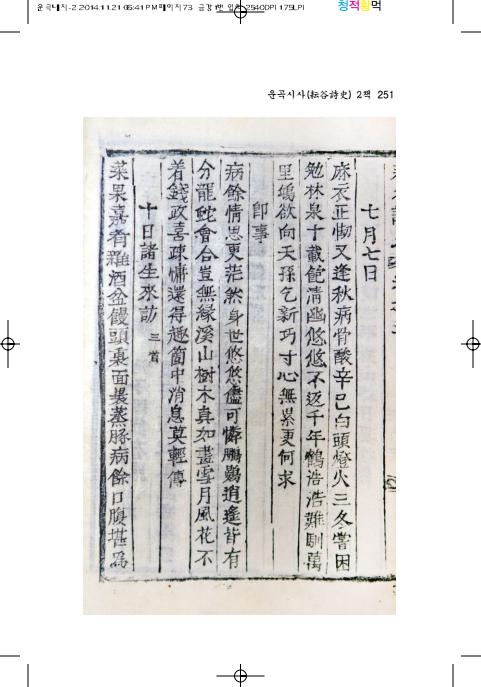 운곡시사(耘谷詩史) 2책 251
七月七日
麻衣正惻又逢秋病骨酸辛已白頭燈火三冬嘗困
勉林泉十載飽淸幽悠悠不返千年鶴浩浩難馴萬
里鴻欲向天孫乞新巧寸心無累更何求
卽事
病餘情思更茫然身世悠悠儘可憐鵬鷃逍遙皆有
分龍蛇會合豈無緣溪山樹木眞如畫雪月風花不
着錢政喜疎慵還得趣箇中消息莫輕傳
十日諸生來訪 三首
菜果嘉肴雜酒盆饅頭裹面㬥蒸豚病餘口腹甚爲
청적황먹